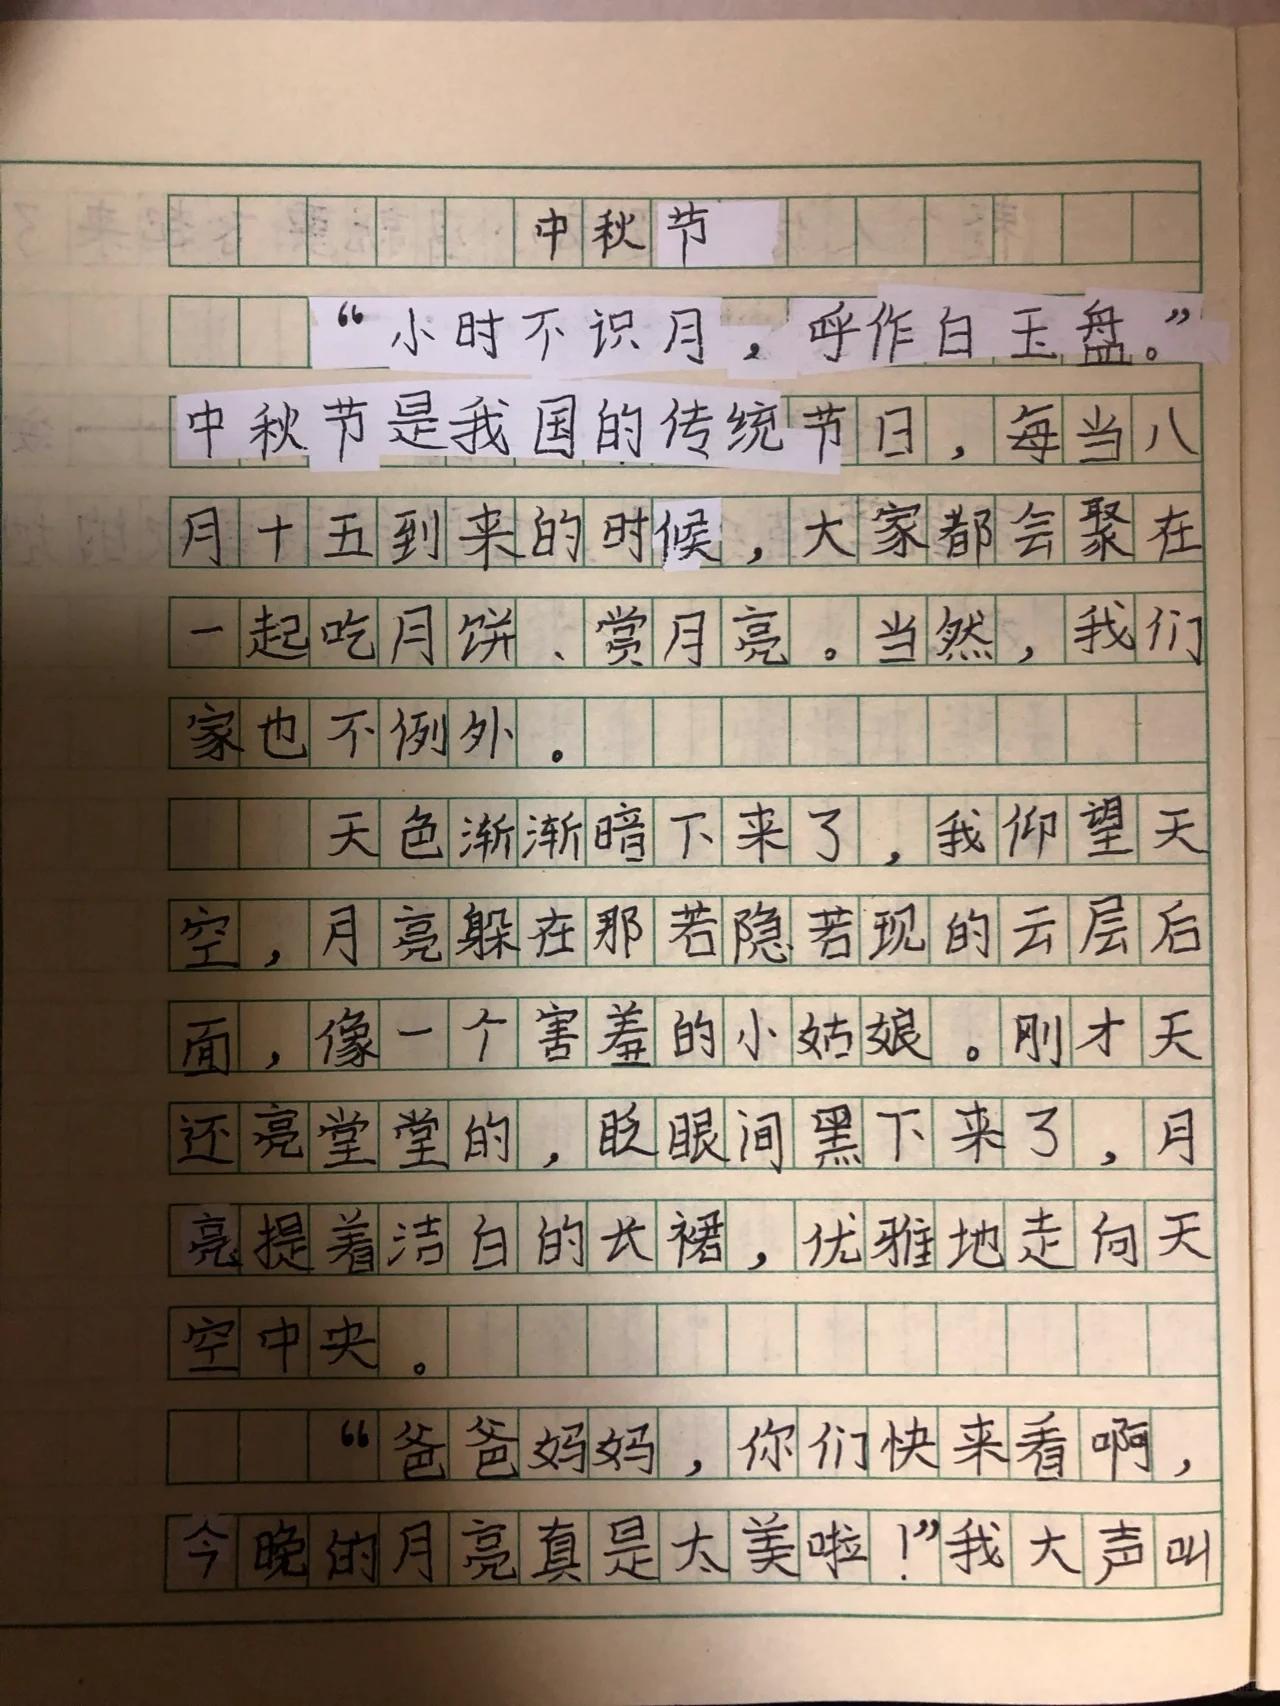 中秋节
“小时不识月，呼作白玉盘。”
中秋节是我国的传统节日，每当八
月十五到来的时候，大家都会聚在
一起吃月饼、赏月亮。当然，我们
家也不例外。
天色渐渐暗下来了，我仰望天
空，月亮躲在那若隐若现的云层后
面，像一个害羞的小姑娘。刚才天
还亮堂堂的，眨眼间黑下来了，月
亮提着洁白的长裙，优雅地走向天
空中央。
“爸爸妈妈，你们快来看啊，
今晚的月亮真是太美啦！”我大声叫